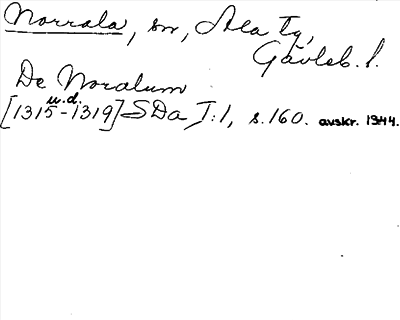 Norrala, sn, Ala tg,
Gävleb. l.
De Noralum
u.d.
[1315-1319] SDa I:1, s.160. avskr. 1944.